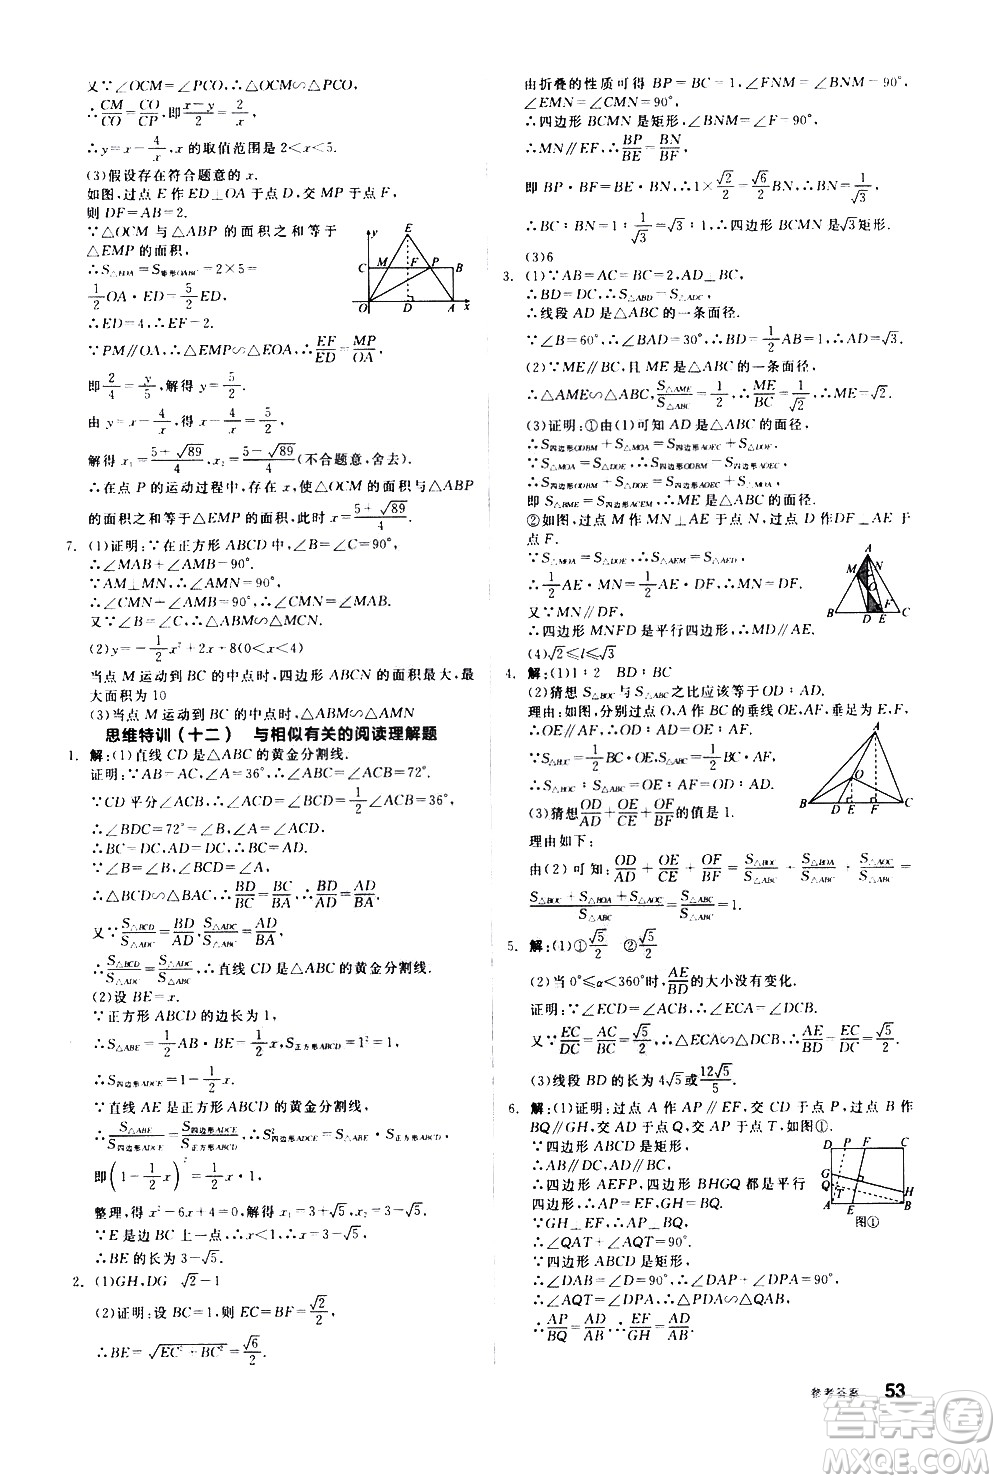 又∵∠OCM=∠PCO,∴△OCM∽△PCO,
∴CM/CO=CO/CP,即(x-y)/2=2/x,
∴y=x-4/x,x的取值范围是2<x<5.
(3)假设存在符合题意的x.
如图,过点E作ED⊥OA于点D,交MP于点F,
则DF=AB=2.
∵△OCM与△ABP的面积之和等于
△EMP的面积,
∴S△EOA=S矩形OABC=2×5=
1/2 OA·ED=5/2 ED,
∴ED=4,∴EF=2.
∵PM∥OA,∴△EMP∽△EOA,∴EF/ED=MP/OA,
即2/4=y/5,解得y=5/2,
由y=x-4/x,得x-4/x=5/2,
解得x₁=(5+√89)/4,x₂=(5-√89)/4(不合题意,舍去).
∴在点P的运动过程中,存在x,使△OCM与△ABP
的面积之和等于△EMP的面积,此时x=(5+√89)/4.
7. (1)证明:∵在正方形ABCD中,∠B=∠C=90°,
∴∠MAB+∠AMB=90°.
∵AM⊥MN,∴∠AMN=90°,
∴∠CMN+∠AMB=90°,∴∠CMN=∠MAB.
又∵∠B=∠C,∴△ABM∽△MCN.
(2)y=-1/2 x²+2x+8(0<x<4)
当点M运动到BC的中点时,四边形ABCN的面积最大,最
大面积为10
(3)当点M运动到BC的中点时,△ABM∽△AMN
思维特训(十二) 与相似有关的阅读理解题
1. 解:(1)直线CD是△ABC的黄金分割线.
证明:∵AB=AC,∠A=36°,∴∠B=∠ACB=72°.
∵CD平分∠ACB,∴∠BCD=1/2∠ACB=36°,
∴∠BDC=72°=∠B,∴BC=CD.
∵∠B=∠B,∠BCD=∠A,
∴△BCD∽△BAC,∴BD/BC=BC/BA,∴BD/AD=AD/BA.
又∵S△BCD/S△ADC=BD/AD,S△ADC/S△ABC=AD/BA,
∴S△BCD/S△ADC=S△ADC/S△ABC,∴直线CD是△ABC的黄金分割线.
(2)设BE=x.
∵正方形ABCD的边长为1,
∴S△ABE=1/2 AB·BE=1/2 x,S正方形ABCD=1²=1,
∴S四边形ADCE=1-1/2 x.
∵直线AE是正方形ABCD的黄金分割线,
∴S△ABE/S四边形ADCE=S四边形ADCE/S正方形ABCD,∴S²四边形ADCE=S△ABE·S正方形ABCD,
即(1-1/2 x)²=1/2 x·1,
整理,得x²-6x+4=0,解得x₁=3+√5,x₂=3-√5.
∵E是边BC上一点,∴x<1,∴x=3-√5,
∴BE的长为3-√5.
2. (1)GH,DG √2-1
(2)证明:设BC=1,则EC=BF=√2/2,
∴BE=√(EC²+BC²)=√6/2.
由折叠的性质可得BP=BC=1,∠FNM=∠BNM=90°,
∠EMN=∠CMN=90°.
∴四边形BCMN是矩形,∴∠BNM=∠F=90°,
∴MN∥EF,∴BP/BE=BN/BF,
即BP·BF=BE·BN,∴1×√2/2=√6/2 BN,∴BN=1/√3,
∴BC∶BN=1∶1/√3=√3∶1,∴四边形BCMN是√3矩形.
(3)6
3. (1)∵AB=AC=BC=2,AD⊥BC,
∴BD=DC=1,∴S△ABD=S△ADC,
∴线段AD是△ABC的一条面径.
∵∠B=60°,∴∠BAD=30°,∴BD=1/2 AB=1,∴AD=√3.
(2)∵ME∥BC,且ME是△ABC的一条面径,
∴△AME∽△ABC,S△AME/S△ABC=1/2,∴ME/BC=1/√2,∴ME=√2.
(3)证明:①由(1)可知AD是△ABC的面径,
∴S四边形ODBM+S△MOA=S四边形AOEC+S△DOE.
∵S△MOA=S△DOE,∴S四边形ODBM+S△DOE=S△MOA+S四边形AOEC,
即S△BME=S四边形ACEM,∴ME是△ABC的面径.
②如图,过点M作MN⊥AE于点N,过点D作DF⊥AE于
点F.
∵S△MOA=S△DOE,∴S△AEM=S△AED,
∴1/2 AE·MN=1/2 AE·DF,∴MN=DF.
又∵MN∥DF,
∴四边形MNFD是平行四边形,∴MD∥AE.
(4)√2≤l≤√3
4. 解:(1)1∶2 BD∶BC
(2)猜想S△BOC与S△ABC之比应该等于OD∶AD.
理由:如图,分别过点O,A作BC的垂线OE,AF,垂足为E,F,
∴OE∥AF,∴OD∶AD=OE∶AF.
∵S△BOC=1/2 BC·OE,S△ABC=1/2 BC·AF,
∴S△BOC∶S△ABC=OE∶AF=OD∶AD.
(3)猜想OD/AD+OE/CE+OF/BF的值是1.
理由如下:
由(2)可知:OD/AD+OE/CE+OF/BF=S△BOC/S△ABC+S△BOA/S△ABC+S△AOC/S△ABC=
(S△BOC+S△BOA+S△AOC)/S△ABC=S△ABC/S△ABC=1.
5. 解:(1)①√5/2 ②√5/2
(2)当0°≤α<360°时,AE/BD的大小没有变化.
证明:∵∠ECD=∠ACB,∴∠ECA=∠DCB.
又∵EC/DC=AC/BC=√5/2,∴△ECA∽△DCB,∴AE/BD=EC/DC=√5/2.
(3)线段BD的长为4√5或12√5/5.
6. 解:(1)证明:过点A作AP∥EF,交CD于点P,过点B作
BQ∥GH,交AD于点Q,交AP于点T,如图①.
∵四边形ABCD是矩形,
∴AB∥DC,AD∥BC,
∴四边形AEFP,四边形BHGQ都是平行
四边形,∴AP=EF,GH=BQ.
∵GH⊥EF,∴AP⊥BQ,
∴∠QAT+∠AQT=90°.
∵四边形ABCD是矩形,
∴∠DAB=∠D=90°,∴∠DAP+∠DPA=90°,
∴∠AQT=∠DPA,∴△PDA∽△QAB,
∴AP/BQ=AD/AB,∴EF/GH=AD/AB.
y
E
C M F P B
O D A x
A
M N
O
B D E F C
A
O
B D E F C
D P F C
G
Q
T
H
A E B
图①
参考答案 53
答案圈
MXQE.COM